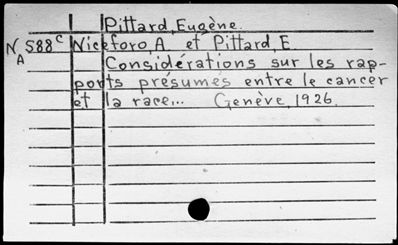 Pittard, Eugène.
N A 588c Niceforo, A. et Pittard, E.
Considérations sur les rap-
ports présumés entre le cancer
et la race... Genève 1926.